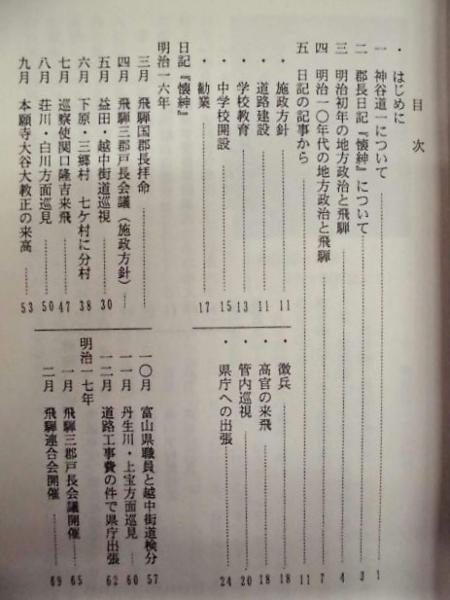 目次
・はじめに
一 神谷道一について……1
二 郡長日記『懐紳』について……3
三 明治初年の地方政治と飛騨……4
四 明治一〇年代の地方政治と飛騨……7
五 日記の記事から……11
・施政方針……11
・道路建設……11
・学校教育……13
・中学校開設……15
・勧業……17
・徴兵……18
・高官の来飛……18
・管内巡視……20
・県庁への出張……24
日記『懐紳』
明治一六年
三月 飛騨国郡長拝命……
四月 飛騨三郡戸長会議（施政方針）……
五月 益田・越中街道巡視……30
六月 下原・三郷村 七ケ村に分村……38
七月 巡察使関口隆吉来飛……47
八月 荘川・白川方面巡見……50
九月 本願寺大谷大教正の来高……53
一〇月 富山県職員と越中街道検分……57
一一月 丹生川・上宝方面巡見……60
一二月 道路工事費の件で県庁出張……62
明治一七年
一月 飛騨三郡戸長会議開催……65
二月 飛騨連合会開催……69